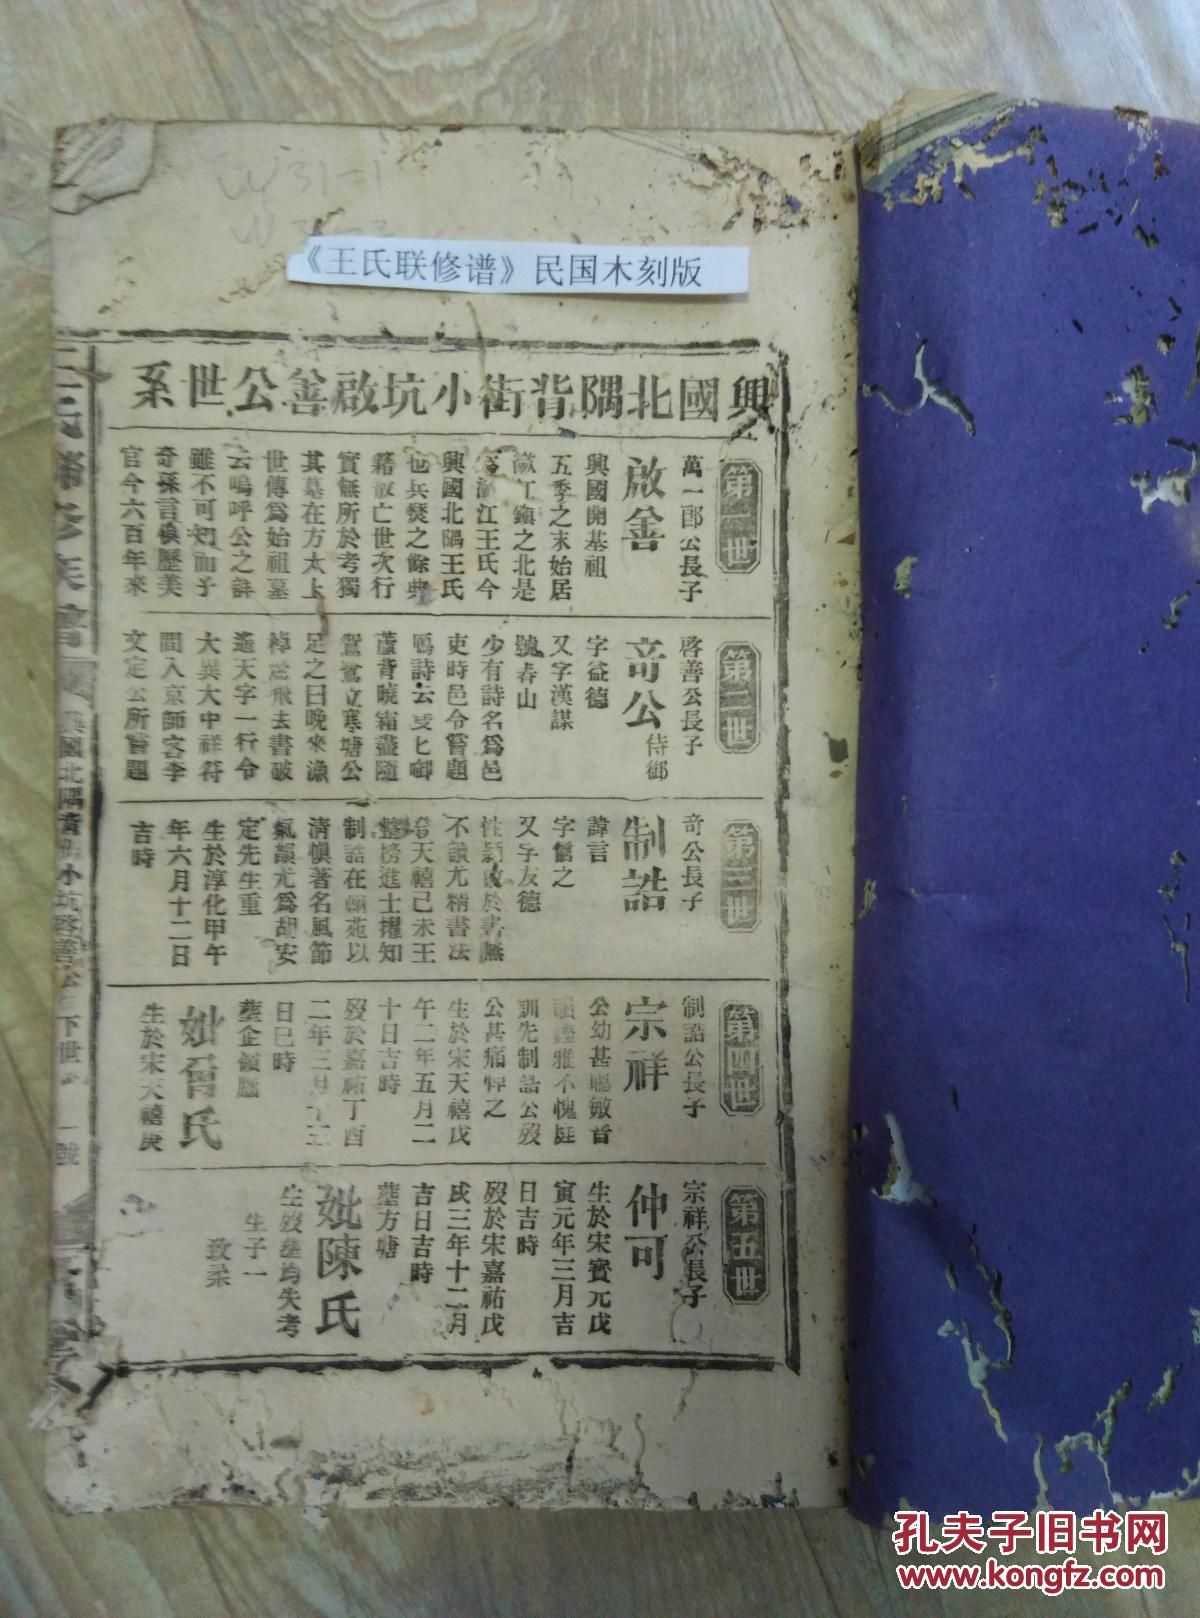 《王氏联修谱》民国木刻版
興國北隅背街小坑啟善公世系
第一世
萬一郎公長子
啟善
興國開基祖
五季之末始居
瀲江鎮之北是
為瀲江王氏今
興國北隅王氏
也兵燹之餘典
籍散亡世次行
實無所於考獨
其墓在方太上
世傳為始祖墓
云嗚呼公之詳
雖不可知而子
奇孫言俱歷美
官今六百年來
第二世
啓善公長子
奇公 侍御
字益德
又字漢謀
號春山
少有詩名為邑
吏時邑令嘗題
鴈詩云
蘆背曉霜盡隨
鴛鷺立寒塘公
足之曰晚來漁
棹驚飛去書破
遙天字一行令
大異大中祥符
間入京師客李
文定公所嘗題
第三世
奇公長子
制誥
諱言
字
又字友德
性穎敏於書無
不讀尤精書法
登天禧己未王
整榜進士擢知
制誥在翰苑以
清慎著名風節
氣韻尤為胡安
定先生重
生於淳化甲午
年六月十二日
吉時
第四世
制誥公長子
宗祥
公幼甚聰敏
雅不愧庭
訓先制誥公歿
公甚痛悼之
生於宋天禧戊
午二年五月二
十日吉時
歿於嘉祐丁酉
二年三月十三
日巳時
葬企嶺
妣曾氏
生於宋天禧庚
第五世
宗祥公長子
仲可
生於宋寶元戊
寅元年三月吉
日吉時
歿於宋嘉祐戊
戌三年十二月
吉日吉時
葬方塘
妣陳氏
生歿葬均失考
生子一
致柔
王氏聯修族譜
興國北隅背街小坑啓善公下世系
一號
孔夫子旧书网
www.kongfz.com